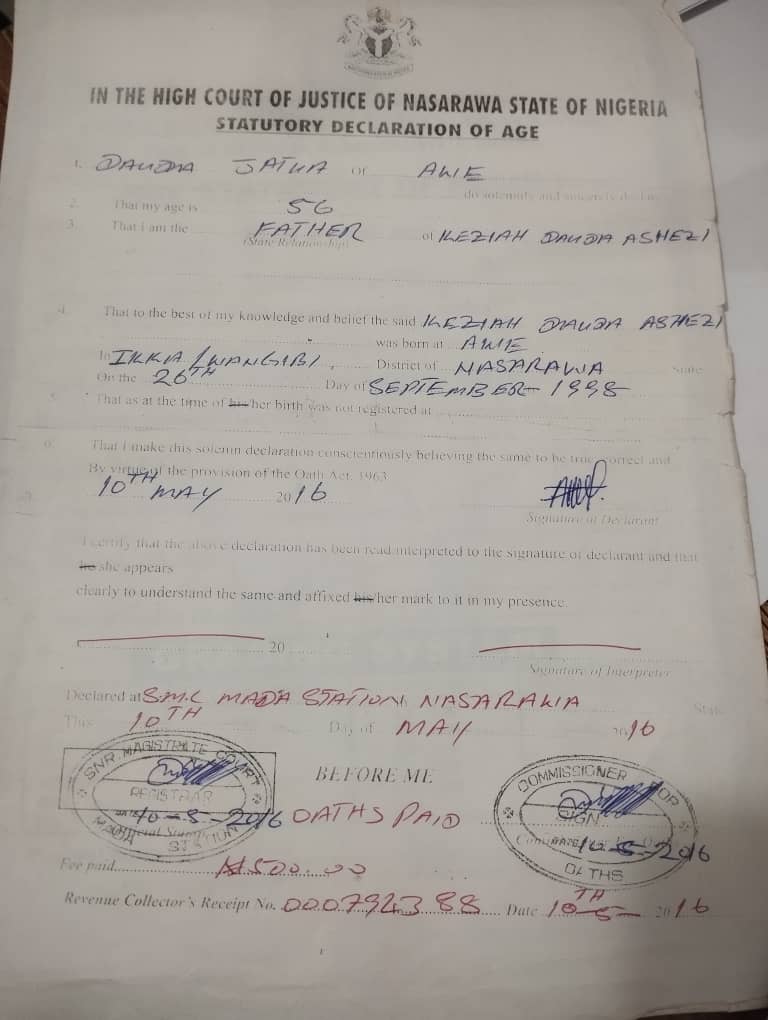 IN THE HIGH COURT OF JUSTICE OF NASARAWA STATE OF NIGERIA
STATUTORY DECLARATION OF AGE
1. DAUDA JATHA of AWE
do solemnly and sincerely declare
2. That my age is 56
3. That i am the FATHER of KEZIAH DAUDA ASHEZI
(State Relationship)
4. That to the best of my knowledge and belief the said KEZIAH DAUDA ASHEZI
was born at AWE
In District of NASARAWA State
On the 26TH Day of SEPTEMBER 1998
5. That as at the time of his/her birth was not registered at
6. That I make this solemn declaration conscientiously believing the same to be true, correct and
By virtue of the provision of the Oath Act. 1963
10TH MAY 2016
Signature of Declarant
I certify that the above declaration has been read interpreted to the signature of declarant and that
he she appears
clearly to understand the same and affixed his/her mark to it in my presence.
20
Signature of Interpreter
Declared at S.M.C MADA STATION NASARAWA State
This 10TH Day of MAY 2016
SNR. MAGISTRATE COURT
REGISTRAR
DATE 10-5-2016
MADA STATION
BEFORE ME
OATHS PAID
COMMISSIONER FOR
SIGN
DATE 10-5-2016
OATHS
Fee paid ₦500.00
Revenue Collector's Receipt No. 000794388 Date 10TH-5- 2016